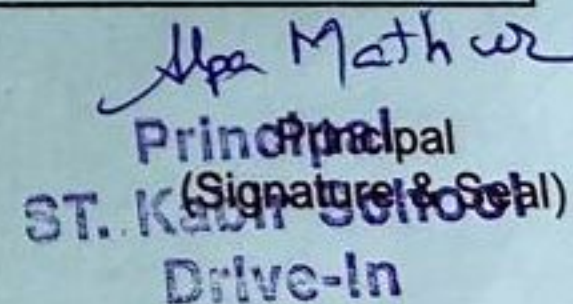 Alpa Mathur
Principal
Principal
(Signature & Seal)
ST. Kabir School
Drive-In